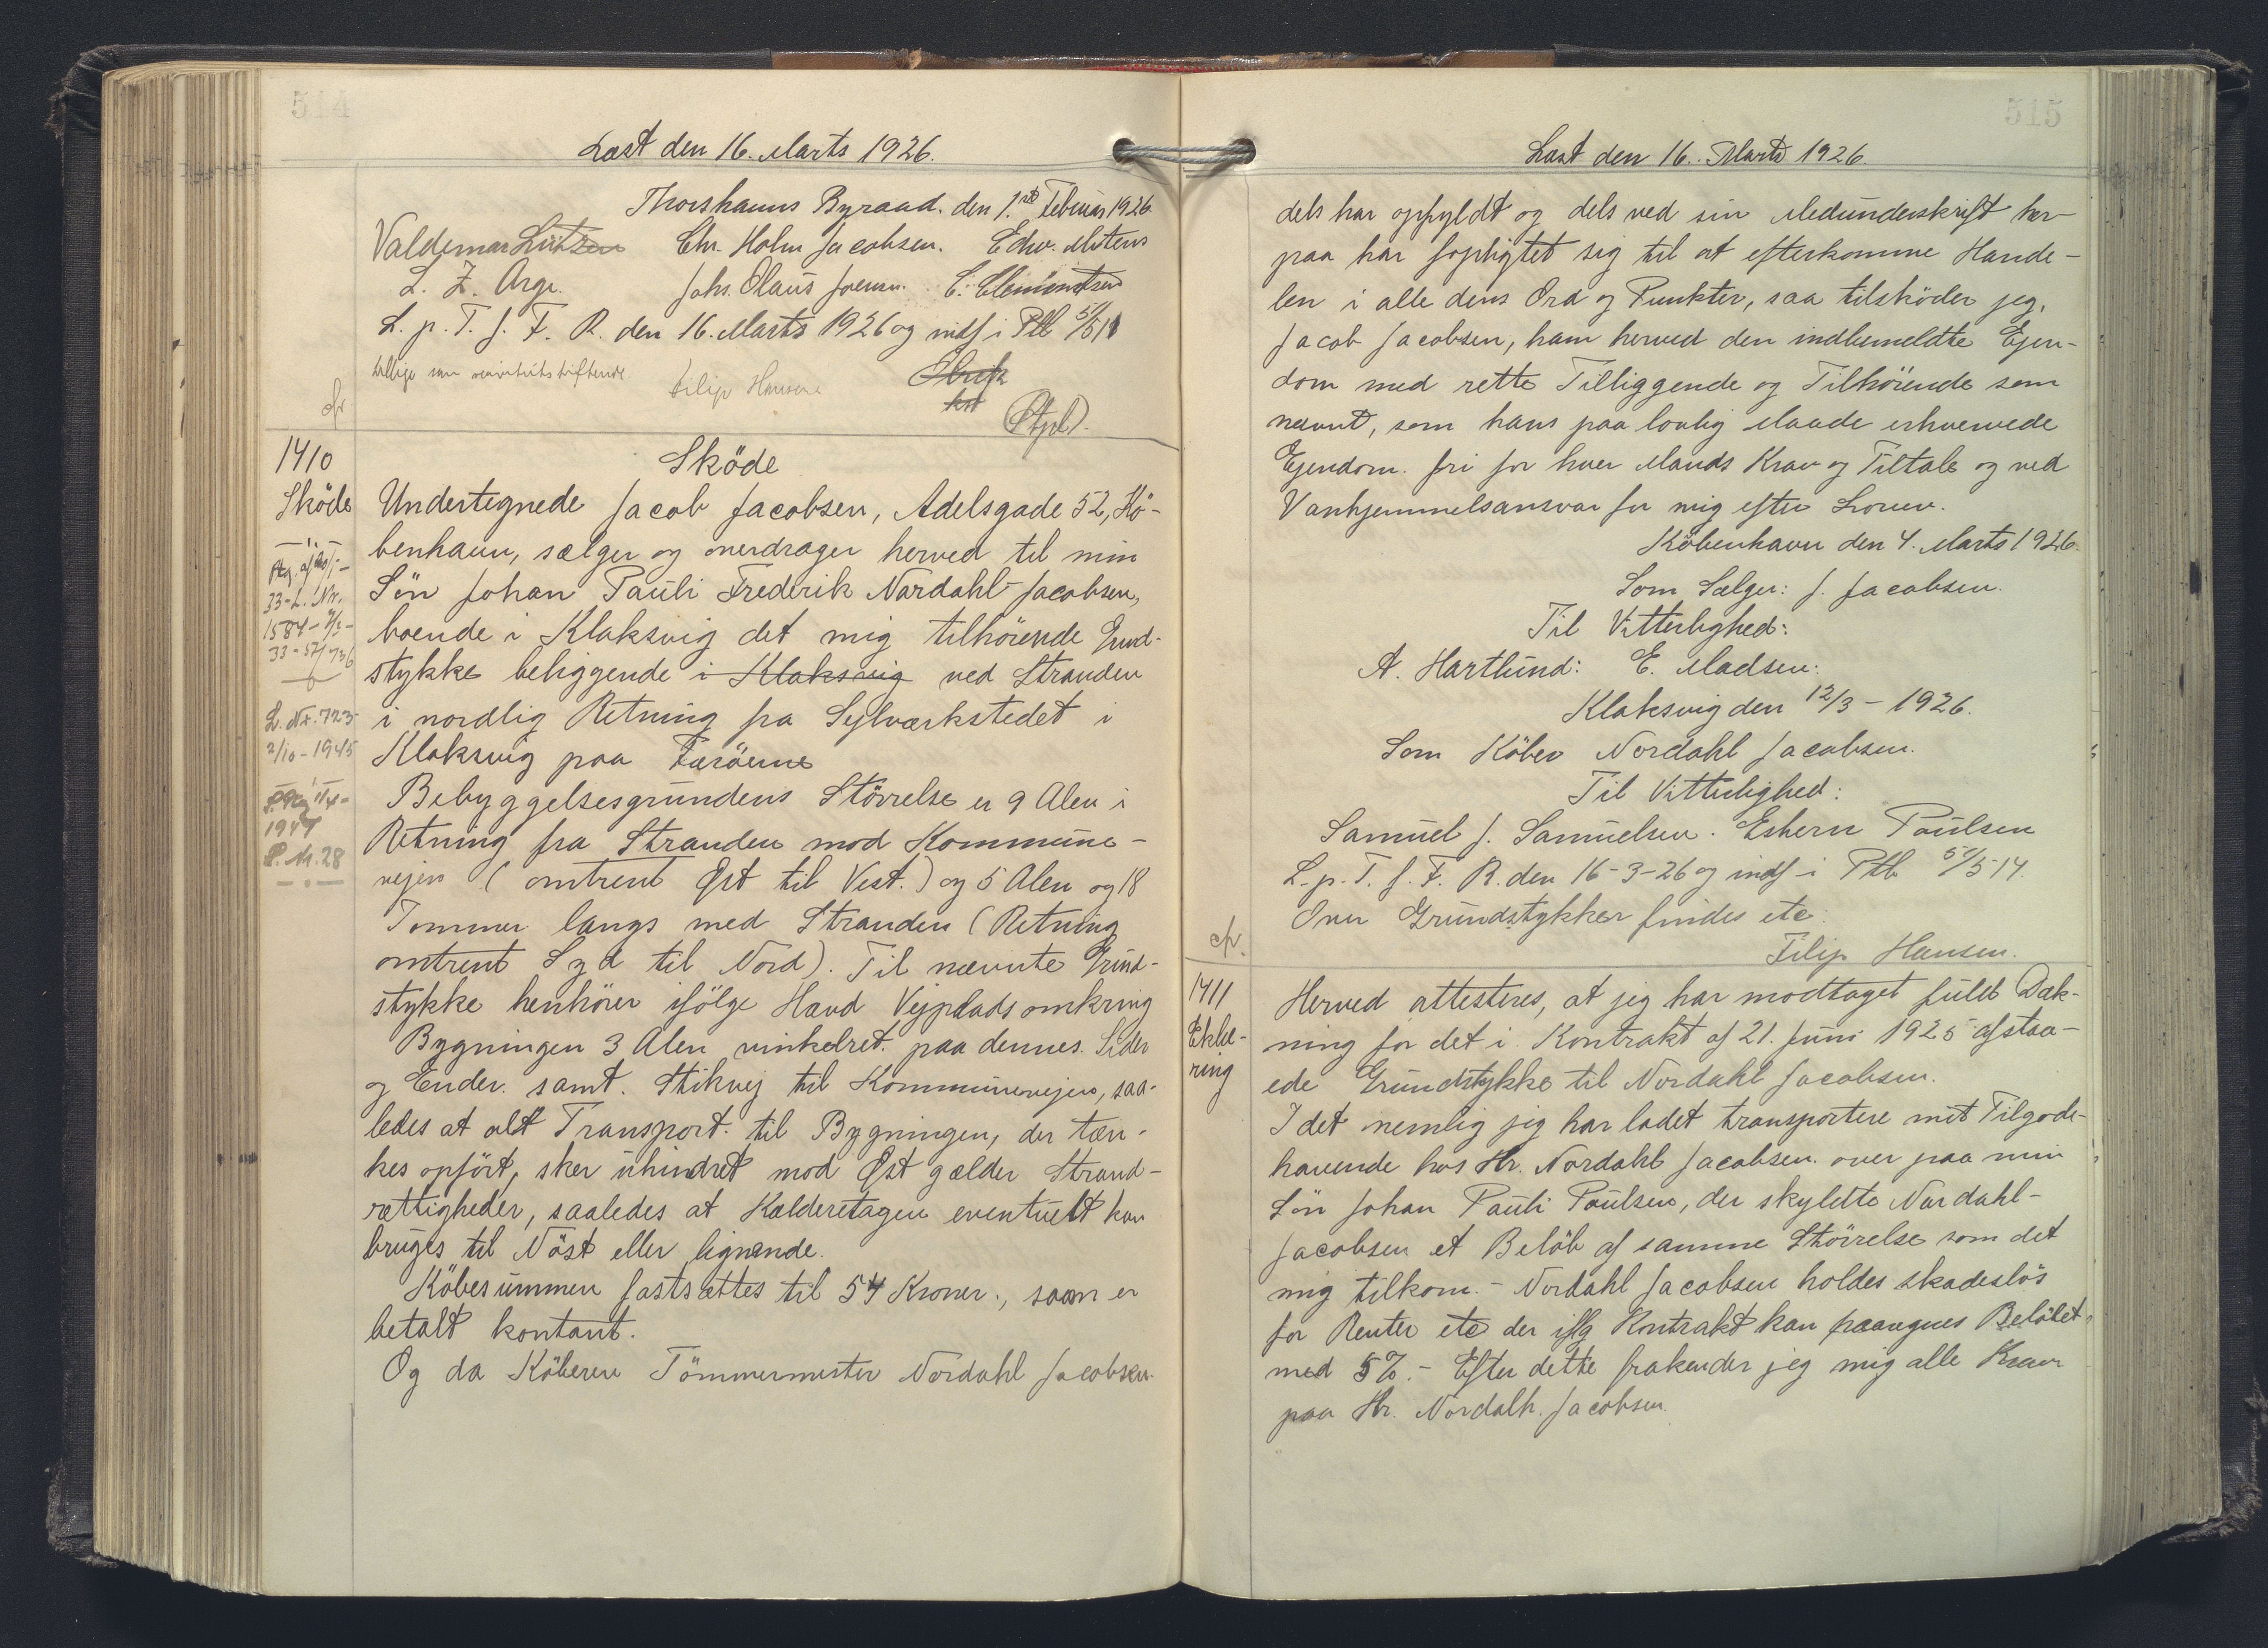 514
Læst den 16. Marts 1926.
Thorshavns Byraad. den 1ste Februar 1926
Valdemar Lützen Chr. Holm Jacobsen. Edw. Mitens
L. Z. Arge. Johs. Olaus Joensen. C. Clementsen
L. p. T. f. F. R. den 16. Marts 1926 og indf i Ptb 5/511
tillige som servitutstiftende Filip Hansen
cfr.
(Stpl).
1410
Sköde
Sköde
Undertegnede Jacob Jacobsen, Adelsgade 52, Kö-
benhavn, sælger og overdrager herved til min
Sön Johan Pauli Frederik Nordahl-Jacobsen,
boende i Klaksvig det mig tilhörende Grund-
stykke beliggende i Klaksvig ved Stranden
i nordlig Retning fra Sylværkstedet i
Klaksvig paa Færöerne
Bebyggelsesgrundens Störrelse er 9 Alen i
Retning fra Stranden mod Kommune-
vejen (omtrent Øst til Vest.) og 5 Alen og 18
Tommer langs med Stranden (Retning
omtrent Syd til Nord). Til nævnte Grund-
stykke henhörer ifölge Hævd Vejplads omkring
Bygningen 3 Alen vinkelret paa dennes. Sider
og Ender. samt. Stikvej til Kommunevejen, saa-
ledes at alt Transport. til Bygningen, der tæn-
kes opfört, sker uhindret mod Øst gælder Strand-
rettigheder, saaledes at Kælderetagen eventuelt kan
bruges til Nöst eller lignende.
Köbesummen fastsættes til 54 Kroner., som er
betalt kontant.
Og da Köberen Tömmermester Nordahl Jacobsen.
33-L. Nr.
1584-
33-57/736
L. Nr. 723
2/10-1945
1947
L. Nr. 28
515
Læst den 16. Marts 1926.
dels har opfyldt og dels ved sin Medunderskrift her-
paa har forpligtet sig til at efterkomme Hande-
len i alle dens Ord og Punkter, saa tilsköder jeg,
Jacob Jacobsen, ham herved den indbemeldte Ejen-
dom med rette Tilliggende og Tilhörende som
nævnt, som hans paa lovlig Maade erhvervede
Ejendom. fri for hver Mands Krav og Tiltale og ved
Vanhjemmelsansvar for mig efter Loven.
Köbenhavn den 4. Marts 1926.
Som Sælger: J. Jacobsen.
Til Vitterlighed:
A. Hartlund: E. Madsen:
Klaksvig den 12/3 - 1926.
Som Köber Nordahl Jacobsen.
Til Vitterlighed:
Samuel J. Samuelsen. Esbern Poulsen
L. p. T. f. F. R. den 16-3-26 og indf i Ptb 5/514.
Over Grundstykker findes etc.
Filip Hansen.
cfr.
1411
Erklæ-
ring
Herved attesteres, at jeg har modtaget fuld Dæk-
ning for det i Kontrakt af 21. Juni 1925 afstaa-
ede Grundstykke til Nordahl Jacobsen.
I det nemlig jeg har ladet transportere mit Tilgode-
havende hos Hr. Nordahl Jacobsen over paa min
Sön Johan Pauli Poulsen, der skyldte Nordahl-
Jacobsen et Belöb af samme Störrelse som det
mig tilkom. - Nordahl Jacobsen holdes skadeslös
for Renter etc der iflg Kontrakt kan paaregnes Belöbet.
med 5%. - Efter dette frakender jeg mig alle Krav
paa Hr. Nordalh. Jacobsen.